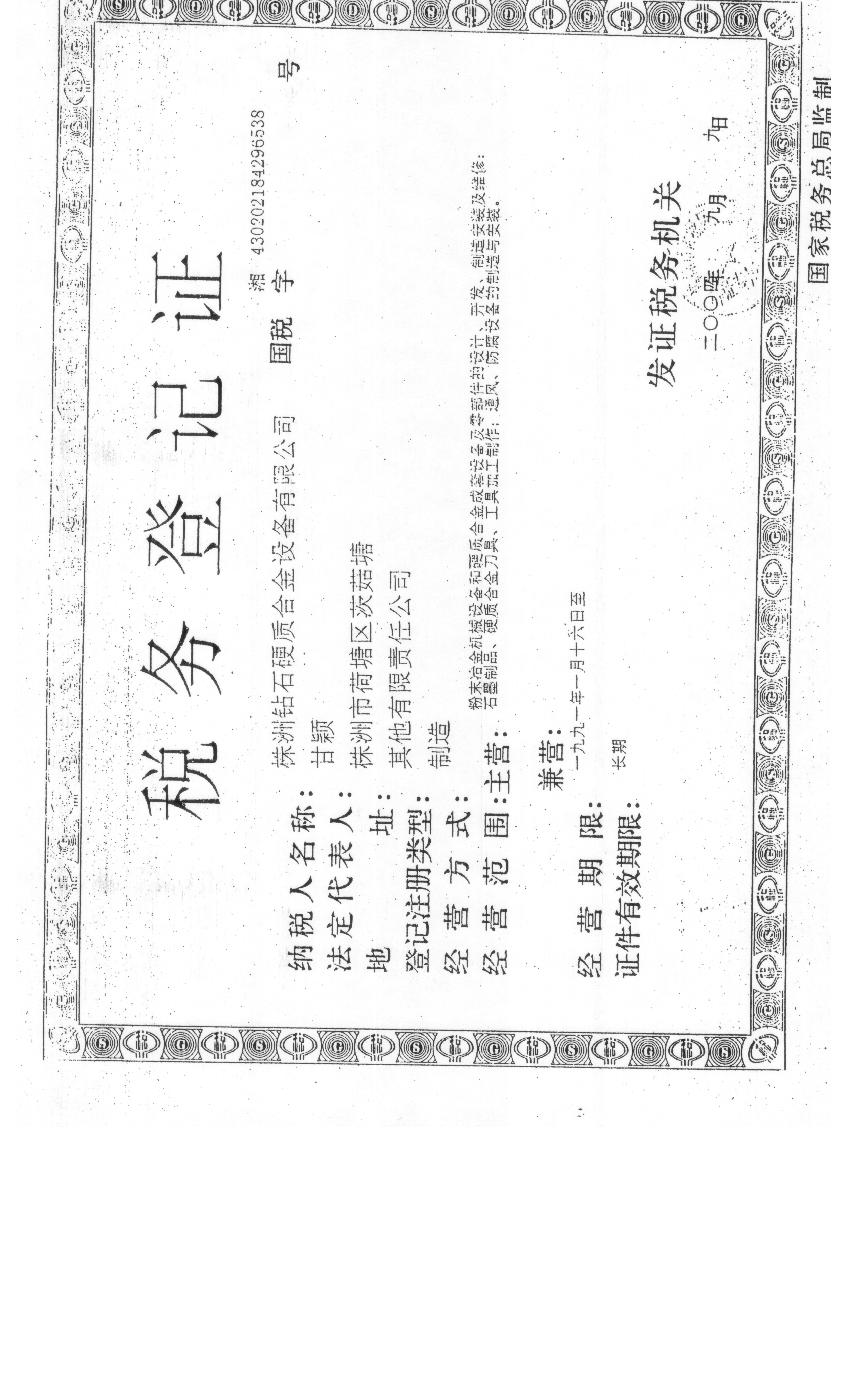 税务登记证
湘
国税 字 430202184296538 号
纳税人名称：株洲钻石硬质合金设备有限公司
法定代表人：甘颖
地 址：株洲市荷塘区茨菇塘
登记注册类型：其他有限责任公司
经营方式：制造
经营范围：主营：粉末冶金机械设备和硬质合金成套设备及零部件的设计、开发、制造安装及维修；
石墨制品、硬质合金刀具、工具加工制作；通风、防腐设备的制造与安装。
兼营：
经营期限：一九九一年一月十六日至
证件有效期限：长期
发证税务机关
二〇〇四年 九月 九日
国家税务总局监制